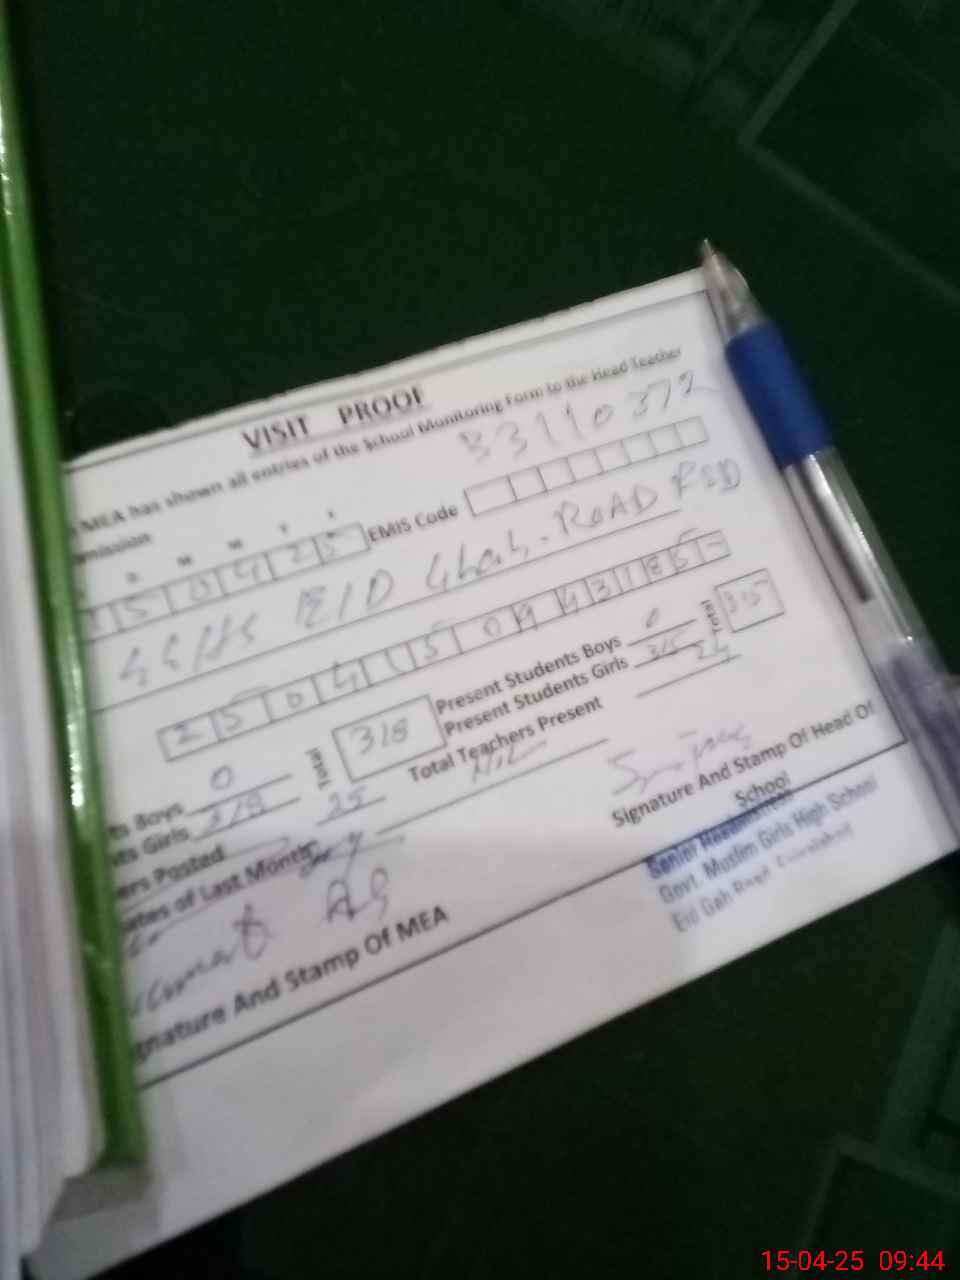 VISIT PROOF
MEA has shown all entries of the School Monitoring Form to the Head Teacher
mission
D M M Y Y
1 5 0 4 2 5 EMIS Code 33110372
GGHS EID Ghah. ROAD FSD
2 5 0 4 1 1 5 0 9 4 3 1 8 5 -
ts Boys 0 Total 318 Present Students Boys 0 Total 315
ts Girls 318 Present Students Girls 315
ers Posted 25 Total Teachers Present 24
ates of Last Month Nil
Signature And Stamp Of Head Of
School
gnature And Stamp Of MEA
Senior Headmistress
Govt. Muslim Girls High School
Eid Gah Road
15-04-25 09:44